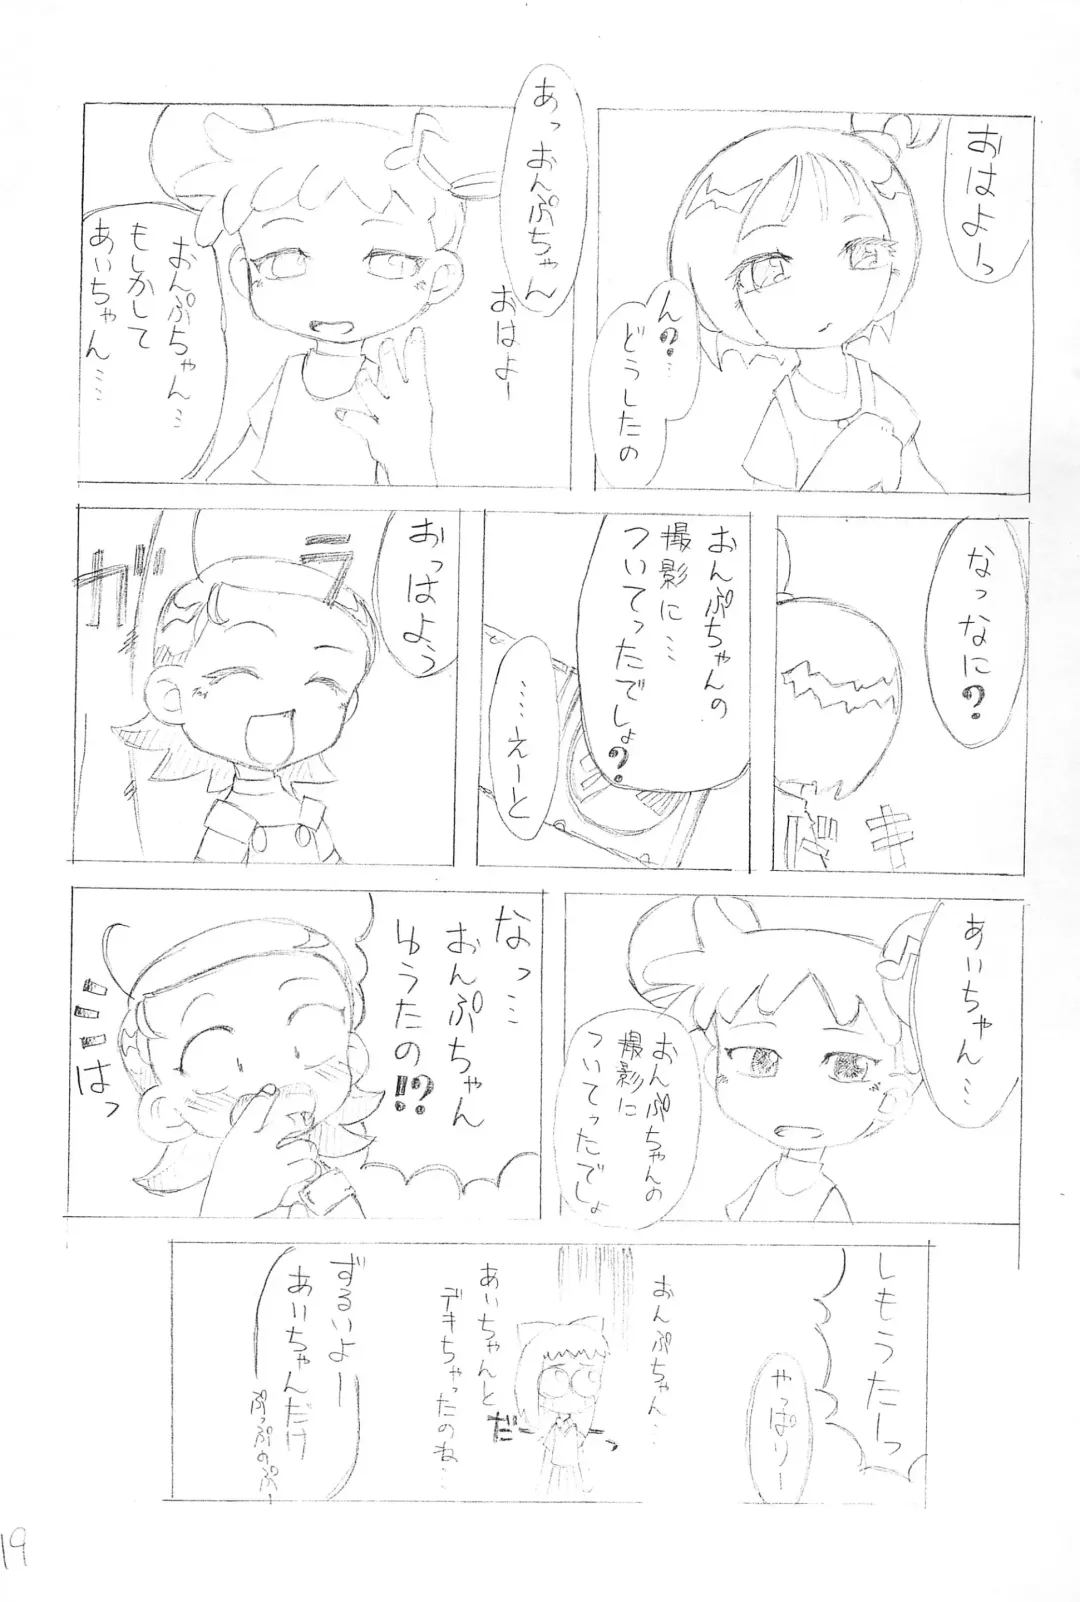 おはよーっ
ん?…
どうしたの
あっおんぷちゃん
おはよー
おんぷちゃん…
もしかして
あいちゃん……
なっなに?
ドキ
おんぷちゃんの
撮影に……
ついてったでしょ?
……えーと
おっはよう
ガラ
あいちゃん…
おんぷちゃんの
撮影に
ついてったでしょ
なっ…
おんぷちゃん
ゆうたの!?
はっ
しもうたーっ
やっぱりー
おんぷちゃん…
あいちゃんと
デキちゃったのね…
だーっ
ずるいよー
あいちゃんだけ
ぷっぷのぷー
19